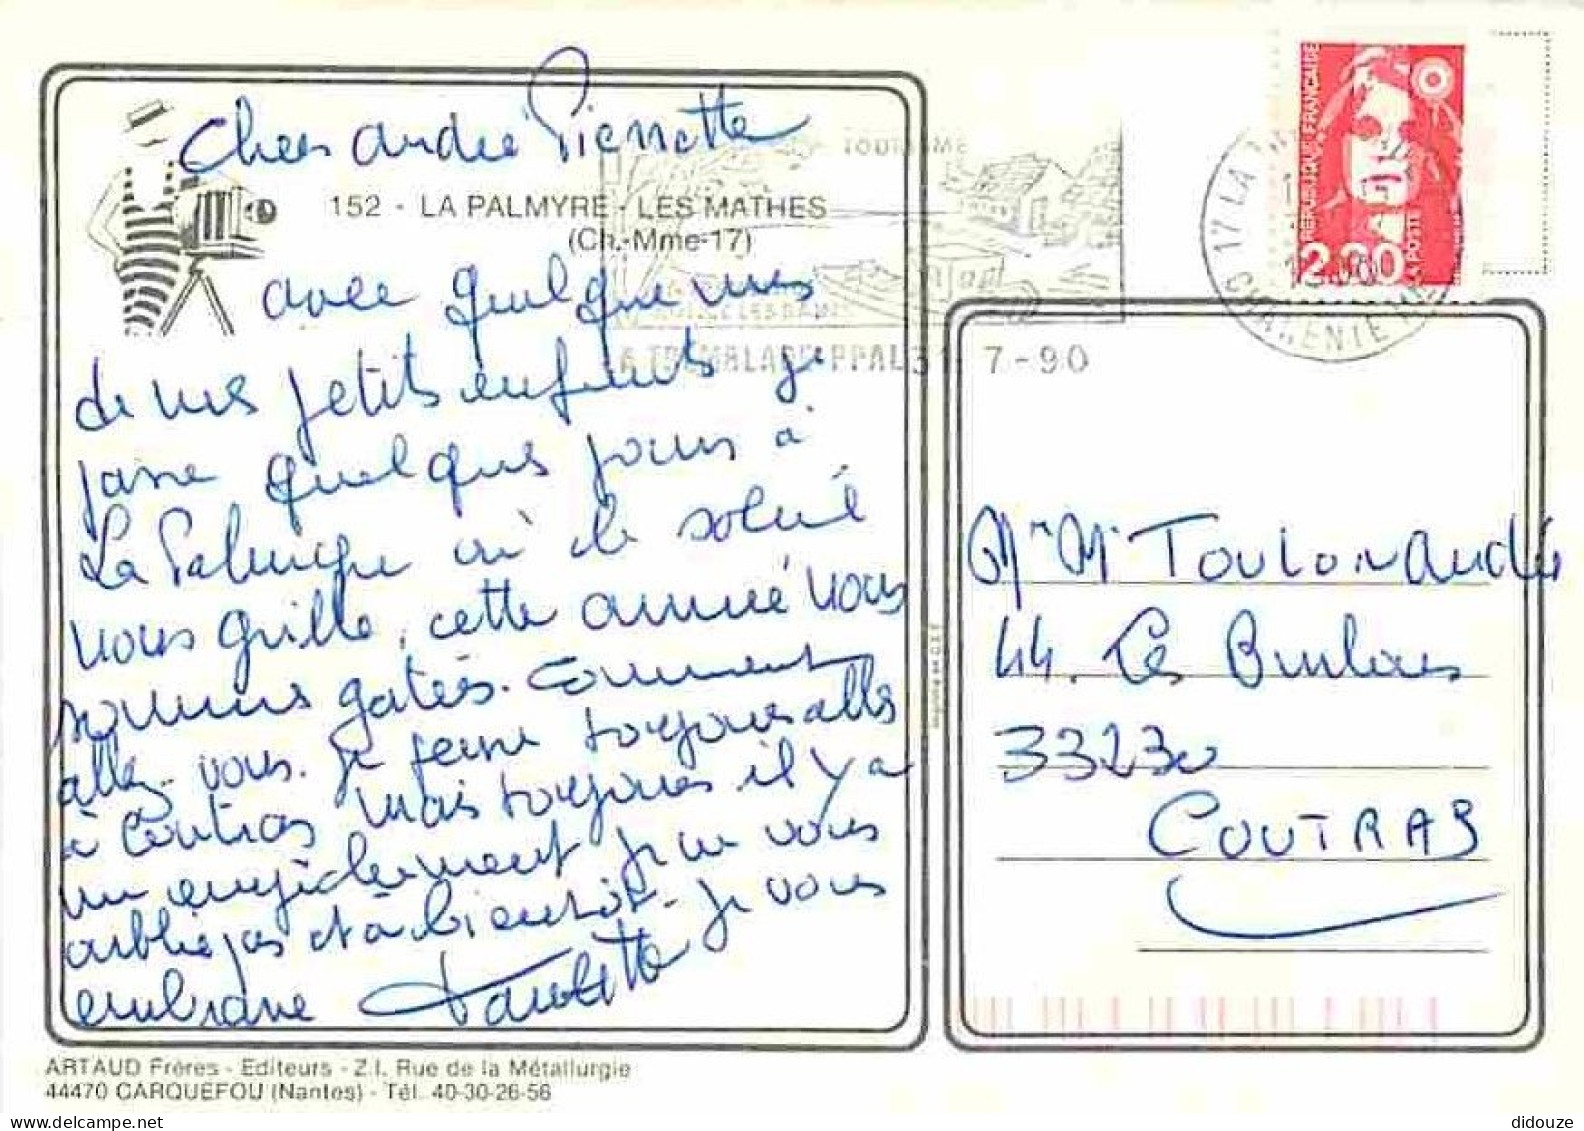 Chers André Pierrette
152 - LA PALMYRE - LES MATHES
(Ch.-Mme-17)
avec quelques uns
de mes petits enfants je
passe quelques jours à
La Palmyre où le soleil
nous grille, cette année nous
sommes gatés. Comment
allez-vous. Je pense toujours aller
à Coutras mais toujours il y a
un empêchement je ne vous
oublie pas et à bientôt. Je vous
embrasse Paulette
ARTAUD Frères - Editeurs - Z.I. Rue de la Métallurgie
44470 CARQUEFOU (Nantes) - Tél. 40-30-26-56
TOURISME
LA TREMBLADE PPAL 31-7-90
17 LA
CHARENTE
RÉPUBLIQUE FRANÇAISE
2,30
LA POSTE
Mr Me TOULON André
44. Les
33230
COUTRAS
didouze